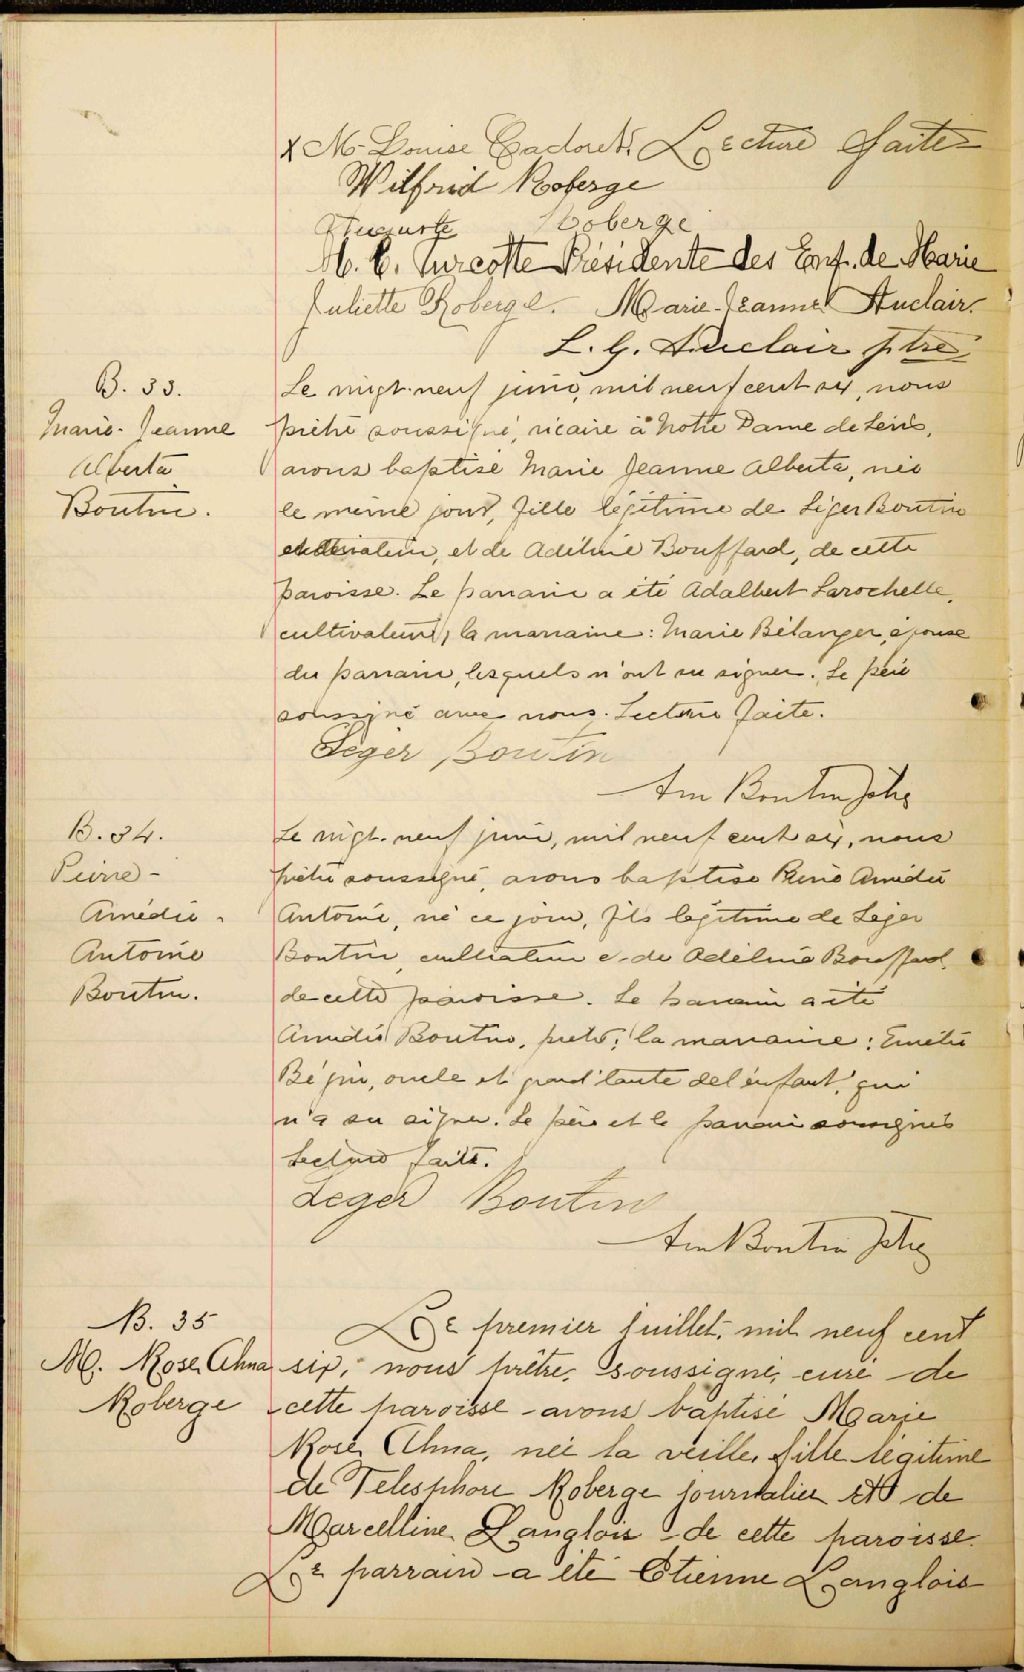 x M-Louise Cadoret. Lecture faite
Wilfrid Roberge
Auguste Roberge
M. C. Turcotte Présidente des Enf. de Marie
Juliette Roberge. Marie-Jeanne Auclair.
L. G. Auclair ptre
B. 33.
Marie-Jeanne
Alberta
Boutin.
Le vingt-neuf juin, mil neuf cent six, nous
prêtre soussigné, vicaire à Notre Dame de Lévis,
avons baptisé Marie Jeanne Alberta, née
le même jour, fille légitime de Léger Boutin
cultivateur, et de Adéline Bouffard, de cette
paroisse. Le parrain a été Adalbert Larochelle,
cultivateur, la marraine: Marie Bélanger, épouse
du parrain, lesquels n'ont su signer. Le père
soussigné avec nous. Lecture faite.
Léger Boutin
Am Boutin Ptre
B. 34.
Pierre-
Amédée-
Antoine
Boutin.
Le vingt-neuf juin, mil neuf cent six, nous
prêtre soussigné, avons baptisé Pierre Amédée
Antoine, né ce jour, fils légitime de Léger
Boutin, cultivateur et de Adéline Bouffard,
de cette paroisse. Le parrain a été
Amédée Boutin, prêtre; la marraine: Emélie
Bégin, oncle et grand'tante de l'enfant, qui
n'a su signer. Le père et le parrain soussignés
Lecture faite.
Leger Boutin
Am Boutin Ptre
B. 35
M. Rose Alma
Roberge
Le premier juillet, mil neuf cent
six, nous prêtre, soussigné, curé de
cette paroisse avons baptisé Marie
Rose Alma, née la veille, fille légitime
de Telesphore Roberge journalier et de
Marcelline Langlois de cette paroisse.
Le parrain a été Etienne Langlois